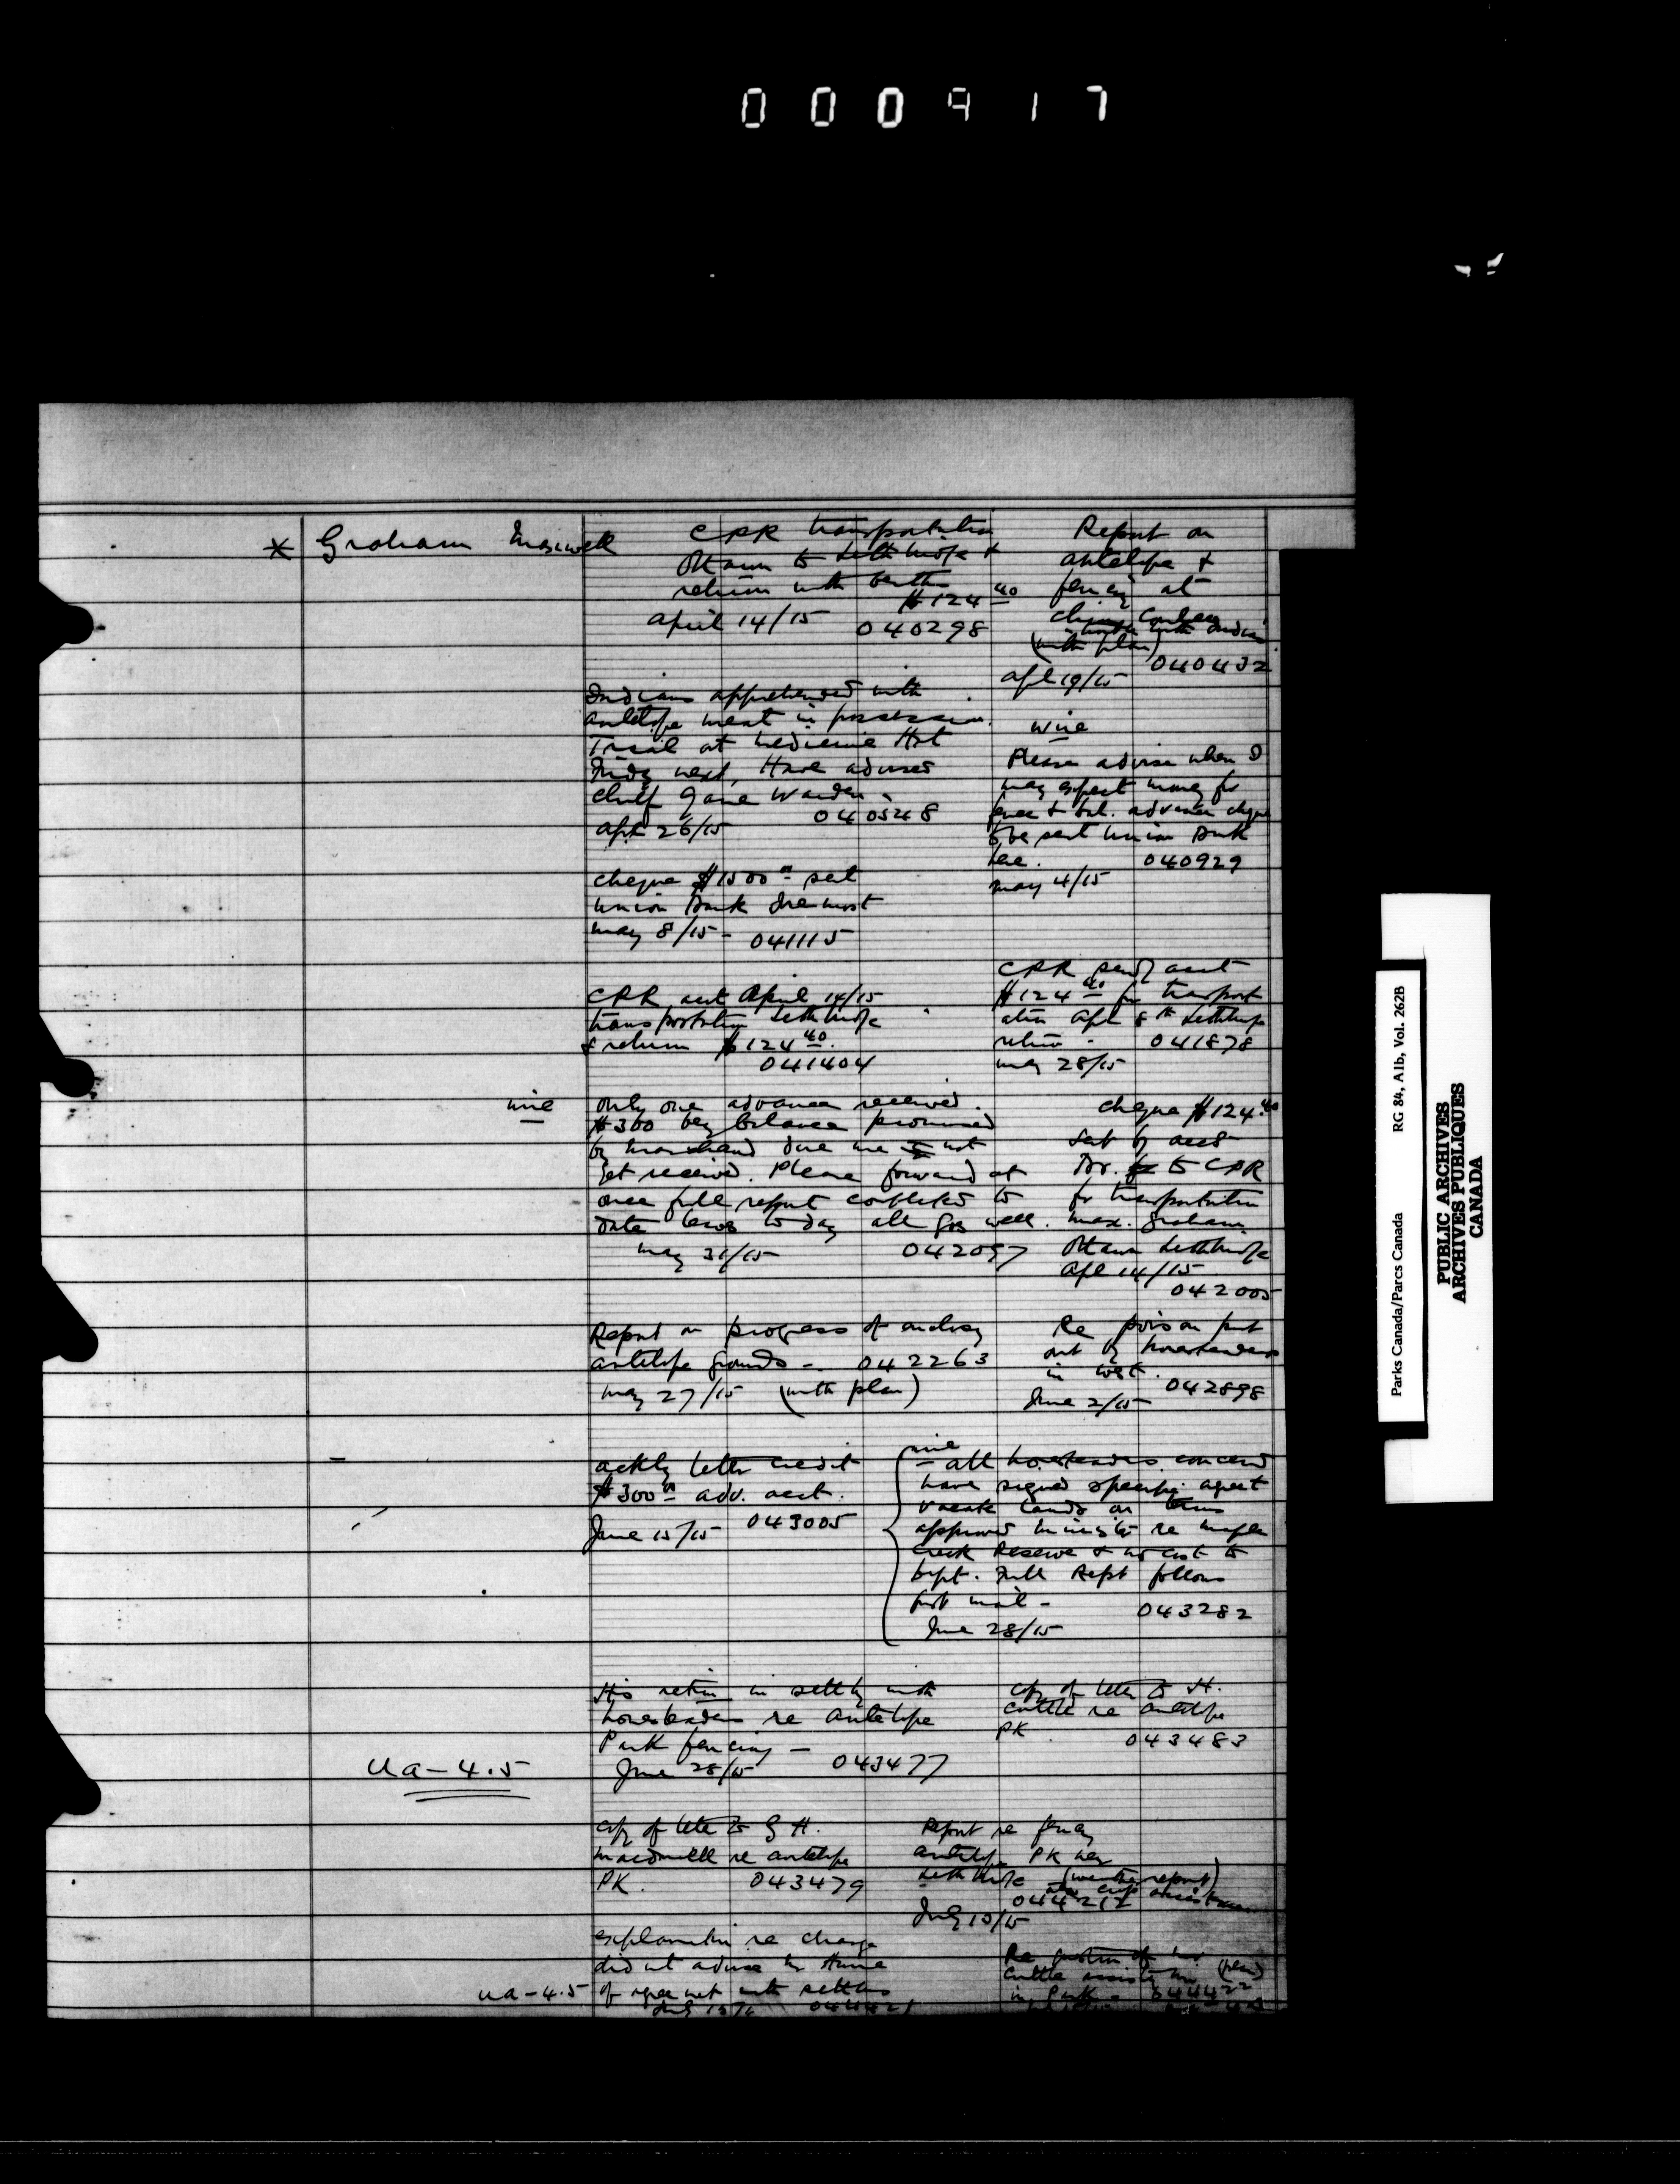 000917
* Graham Maxwell
CPR transportation
Ottawa to Lethbridge &
return with berth
$124.40
April 14/15 040298
Report on
antelope &
fencing at
(with plan)
040432
Apl 19/15
Indians apprehended with
antelope meat in possession.
Trial at Medicine Hat
Friday next, Have advised
Chief Game Warden -
Apl 26/15 040548
wire
Please advise when I
may expect money for
fence & bal. advance cheque
to be sent Union Bank
here. 040929
May 4/15
cheque $1500 00 sent
Union Bank Foremost
May 8/15 - 041115
CPR acct April 14/15
transportation Lethbridge
& return $124.40.
041404
CPR send acct
$124.40 for transport
ation Apl 8th Lethbridge
return - 041878
May 28/15
wire
only one advance received.
$300 balance promised
by due me not
yet received. Please forward at
once full report completed to
date today all going well.
May 31/15 042057
cheque $124.40
sent by acct
Br. to CPR
for transportation
Max. Graham
Ottawa Lethbridge
Apl 14/15
042005
Report on progress of enclosing
antelope grounds - 042263
May 27/15 (with plan)
Re poison put
out by homesteaders
in west. 042898
June 2/15
acklg letter credit
$300 00 adv. acct.
June 15/15 043005
wire
- all homesteaders concerned
have signed specific agreet
vacate lands on terms
approved Minister re Maple
Creek Reserve & no cost to
Dept. Full Rept follows
first mail -
June 28/15 043282
His return in settlg with
homesteaders re Antelope
Park fencing -
June 28/15 043477
copy of letter to H.
Cuttle re antelope
PK. 043483
Ua-4.5
copy of letter to G H.
Macdonell re antelope
PK. 043479
Report re fencing
antelope PK near
Lethbridge (weather report)
044212
July 10/15
explanation re charge
did not advise Mr
of agreemt with settlers
ua-4.5
044421
Re
Cuttle (plan)
in Park - 044422
Parks Canada/Parcs Canada RG 84, A1b, Vol. 262B
PUBLIC ARCHIVES
ARCHIVES PUBLIQUES
CANADA